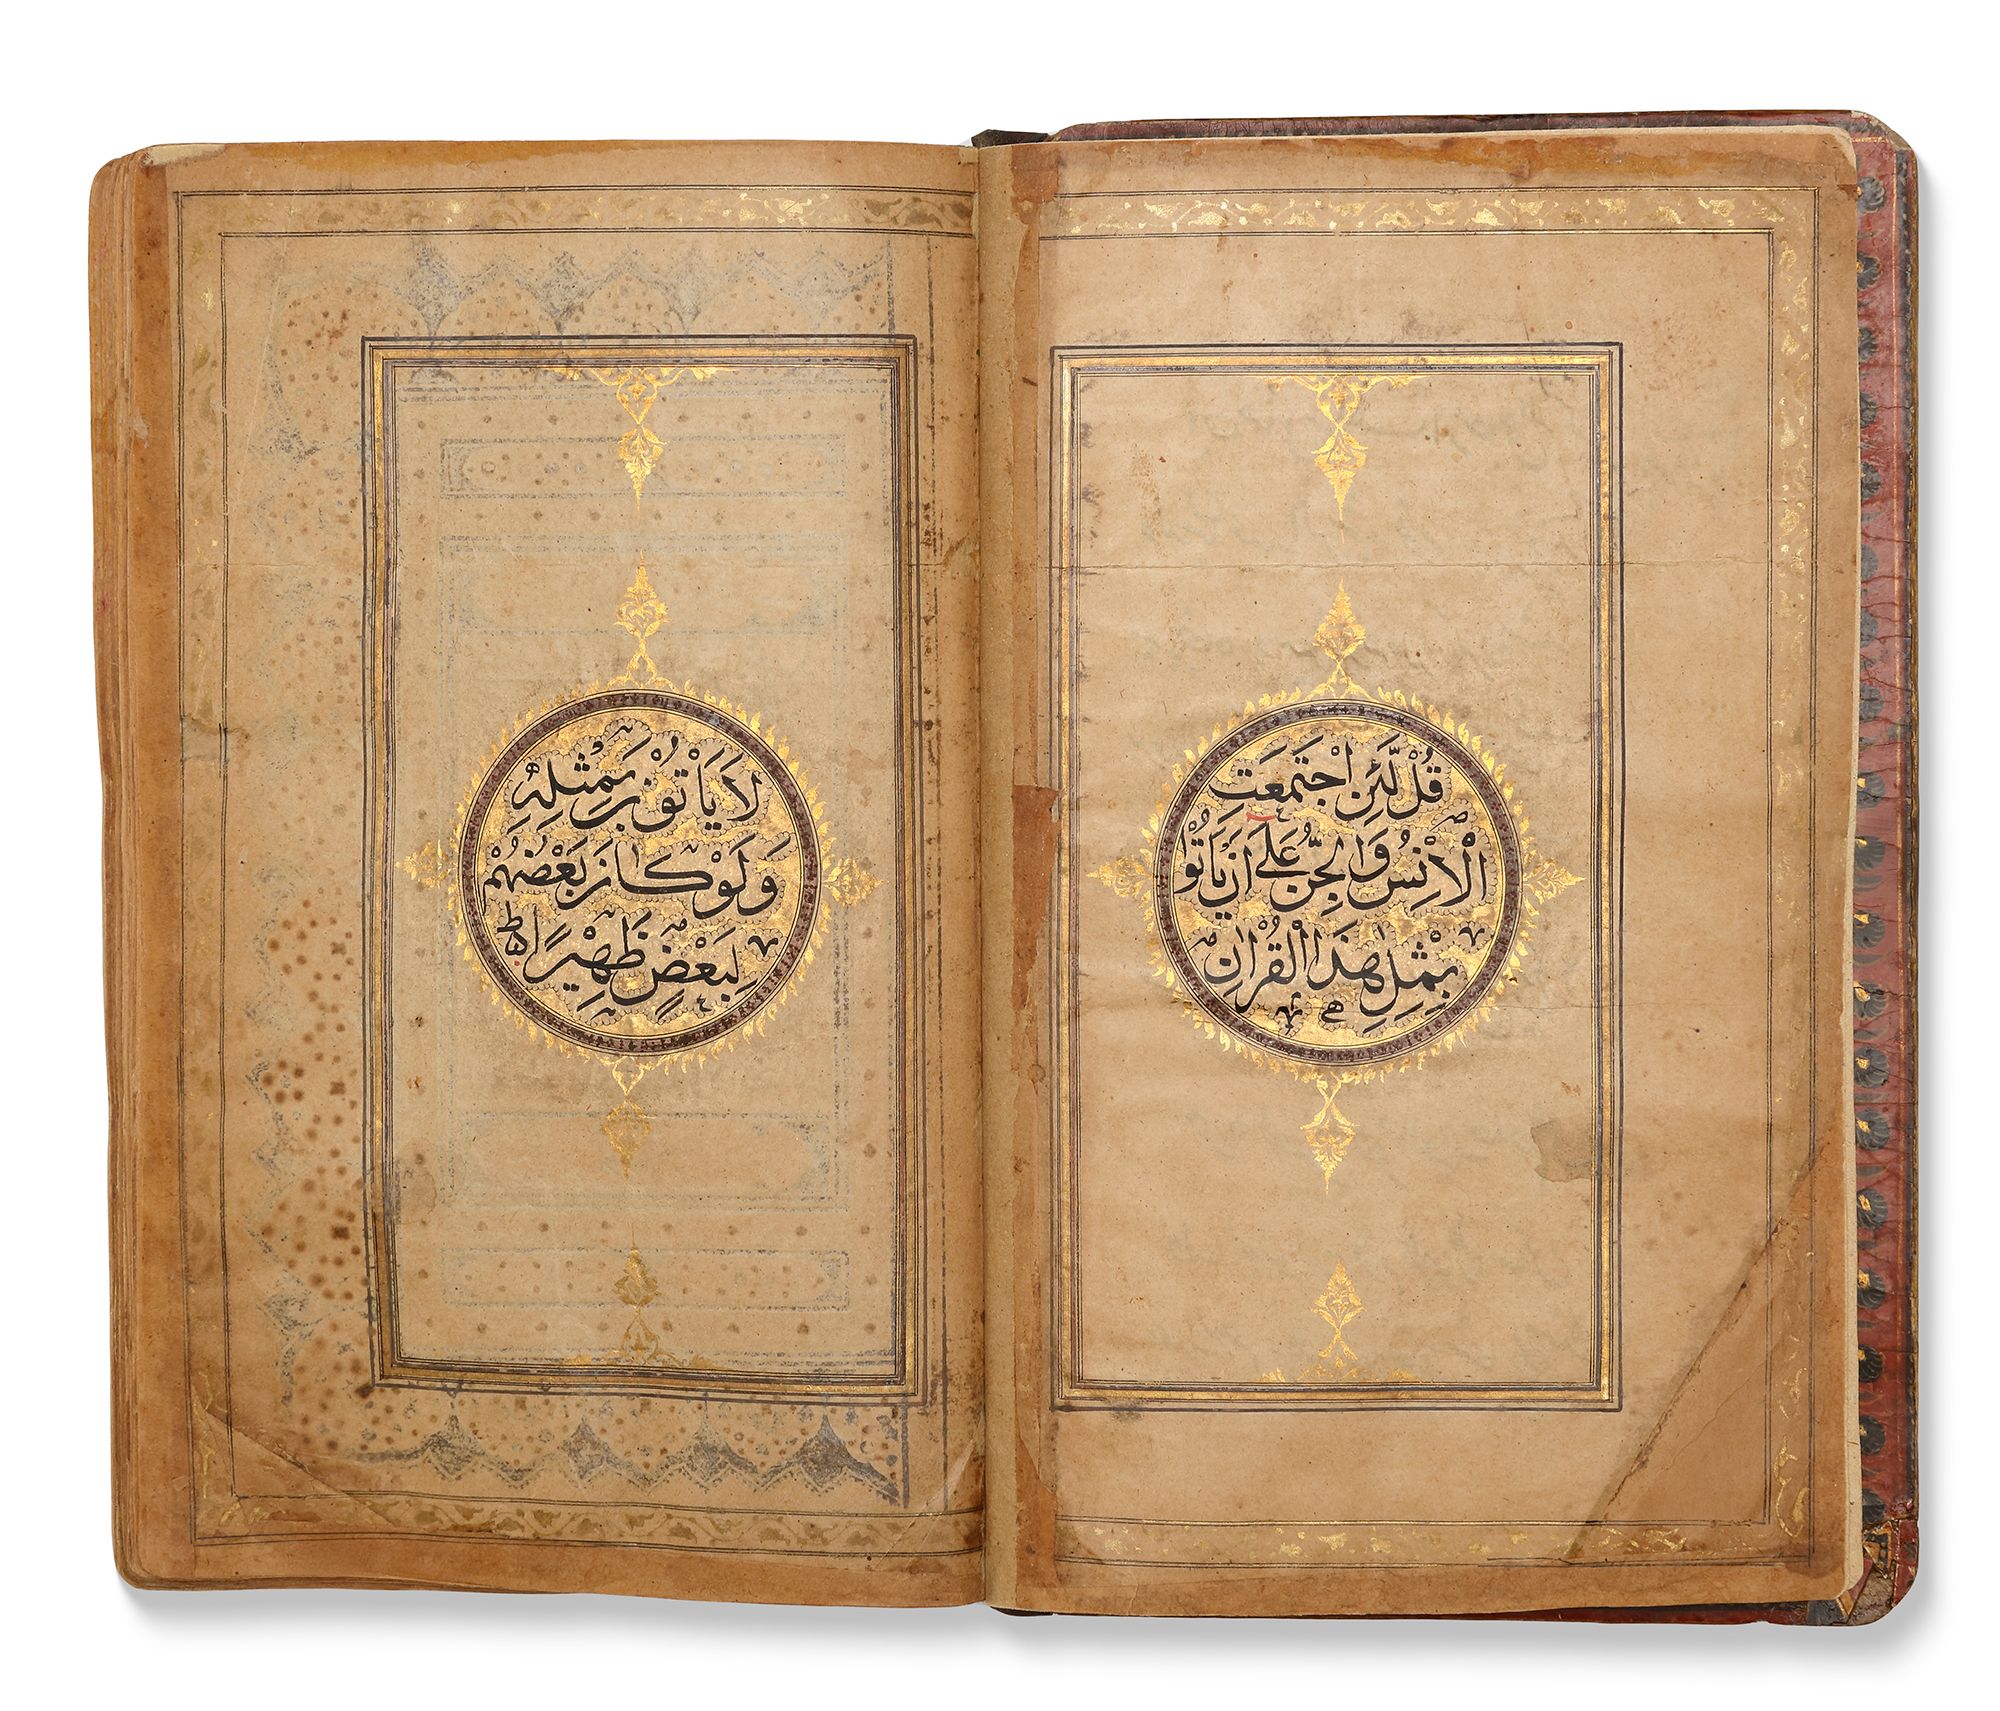 قُلْ لَّئِنِ اجْتَمَعَتِ
الْاِنْسُ وَالْجِنُّ عَلٰى اَنْ يَاْتُوْا
بِمِثْلِ هٰذَا الْقُرْاٰنِ
لَا يَاْتُوْنَ بِمِثْلِهٖ
وَلَوْ كَانَ بَعْضُهُمْ
لِبَعْضٍ ظَهِيْرًا